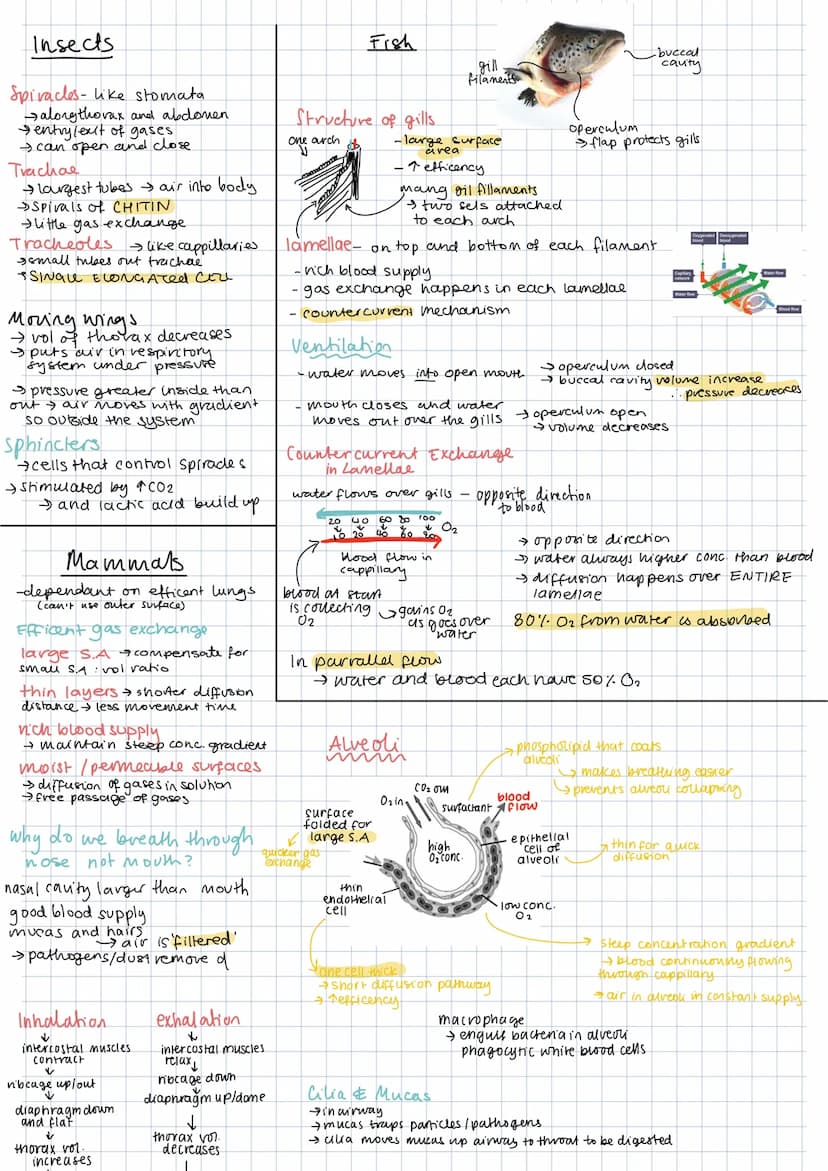 Insects
Spiracles - like stomata
→ along thorax and abdomen
→ entry/exit of gases
→ can open and close
Trachae
→ largest tubes → air into body
→ spirals of CHITIN
→ little gas exchange
Tracheoles → like cappillaries
→ small tubes out trachae
→ SINGLE ELONGATED CELL
Moving wings
→ vol of thorax decreases
→ puts air in respiritory
system under pressure
→ pressure greater inside than
out → air moves with gradient
so outside the system
Sphincters
→ cells that control spiracles
→ stimulated by ↑ CO2
→ and lactic acid build up
Fish
gill
filaments
buccal
cavity
operculum
→ flap protects gills
Structure of gills
one arch
- large surface
area
- ↑ efficency
many gil fillaments
→ two sets attached
to each arch
lamellae - on top and bottom of each filament
- rich blood supply
- gas exchange happens in each lamellae
- countercurrent mechanism
Oxygenated
blood
Deoxygenated
blood
Capillary
network
Water flow
Water flow
Blood flow
Ventilation
- water moves into open mouth
→ operculum closed
→ buccal cavity volume increase
∴ pressure decreases
- mouth closes and water
moves out over the gills
→ operculum open
→ volume decreases
Counter current Exchange
in Lamellae
water flows over gills - opposite direction
to blood
20 40 60 80 100
O2
10 20 40 60 80
blood flow in
cappillary
blood at start
is collecting
O2
→ gains O2
as goes over
water
→ opposite direction
→ water always higher conc. than blood
→ diffusion happens over ENTIRE
lamellae
80% O2 from water is absorbed
In parrallel flow
→ water and blood each have 50% O2
Mammals
- dependant on efficent lungs
(can't use outer surface)
Efficent gas exchange
large S.A → compensate for
small S.A : vol ratio
thin layers → shorter diffusion
distance → less movement time
rich blood supply
→ maintain steep conc. gradient
moist / permeable surfaces
→ diffusion of gases in solution
→ free passage of gases
Why do we breath through
nose not mouth?
nasal cavity larger than mouth
good blood supply
mucas and hairs
→ air is 'filtered'
→ pathogens/dust remove d
Inhalation
intercostal muscles
contract
ribcage up/out
diaphragm down
and flat
thorax vol.
increases
exhalation
intercostal muscles
relax
ribcage down
diaphragm up/dome
thorax vol.
decreases
Alveoli
phospholipid that coats
alveoli
→ makes breathing easier
→ prevents alveoli collapsing
CO2 out
O2 in
surfactant
blood
flow
surface
folded for
large S.A
quicker gas
exchange
high
O2 conc.
epithelial
cell of
alveoli
→ thin for quick
diffusion
thin
endothelial
cell
low conc.
O2
one cell thick
→ short diffusion pathway
→ ↑ efficency
steep concentration gradient
→ blood continuously flowing
through cappillary
→ air in alveoli in constant supply
macrophage
→ engulf bacteria in alveoli
phagocytic white blood cells
Cilia & Mucas
→ in airway
→ mucas traps particles / pathogens
→ cilia moves mucas up airway to throat to be digested